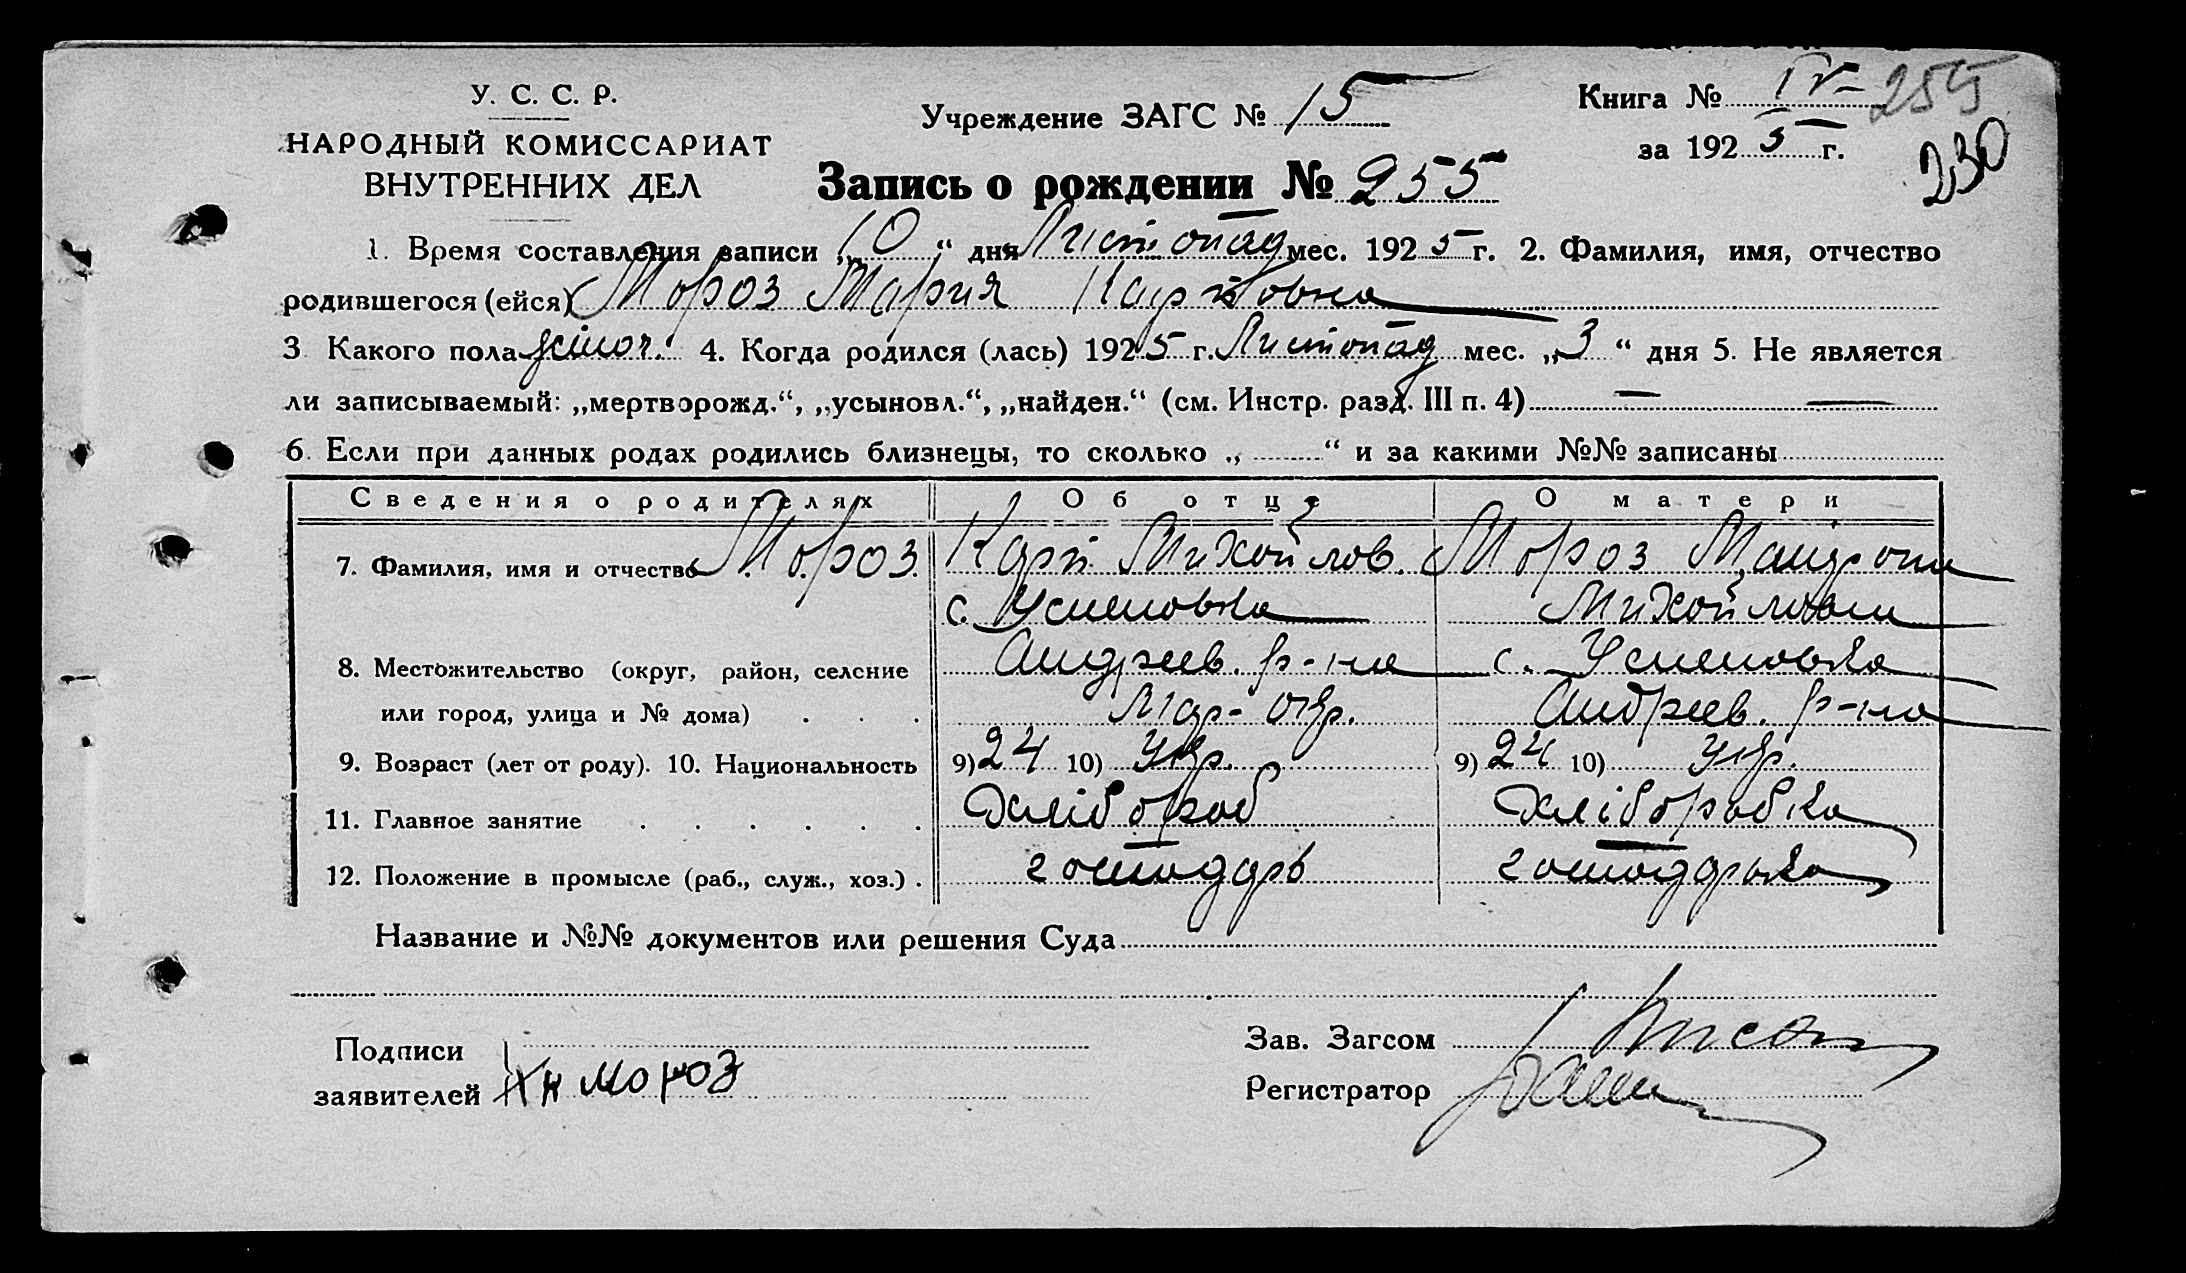 У. С. С. Р.
НАРОДНЫЙ КОМИССАРИАТ
ВНУТРЕННИХ ДЕЛ
Учреждение ЗАГС № 15
Книга № IV 255
за 1925 г.
230
Запись о рождении № 255
1. Время составления записи „10“ дня Листопад мес. 1925 г. 2. Фамилия, имя, отчество
родившегося (ейся) Мороз Мария Карповна
3. Какого пола жіноч. 4. Когда родился (лась) 1925 г. Листопад мес. „3“ дня 5. Не является
ли записываемый: „мертворожд.“, „усыновл.“, „найден.“ (см. Инстр. разд. III п. 4) — —
6. Если при данных родах родились близнецы, то сколько „ “ и за какими №№ записаны
Сведения о родителях Об отце О матери
7. Фамилия, имя и отчество Мороз Карп Михойлов. Мороз
с. Успеновка Михойловна
8. Местожительство (округ, район, селение Андреев. р-на с. Успеновка
или город, улица и № дома) . . . Мар- окр. Андреев. р-на
9. Возраст (лет от роду). 10. Национальность 9) 24 10) Укр. 9) 24 10) Укр.
11. Главное занятие . . . . . . Хлібороб Хліборобка
12. Положение в промысле (раб., служ., хоз.) . господарь господарька
Название и №№ документов или решения Суда
Подписи
заявителей Мороз
Зав. Загсом
Регистратор